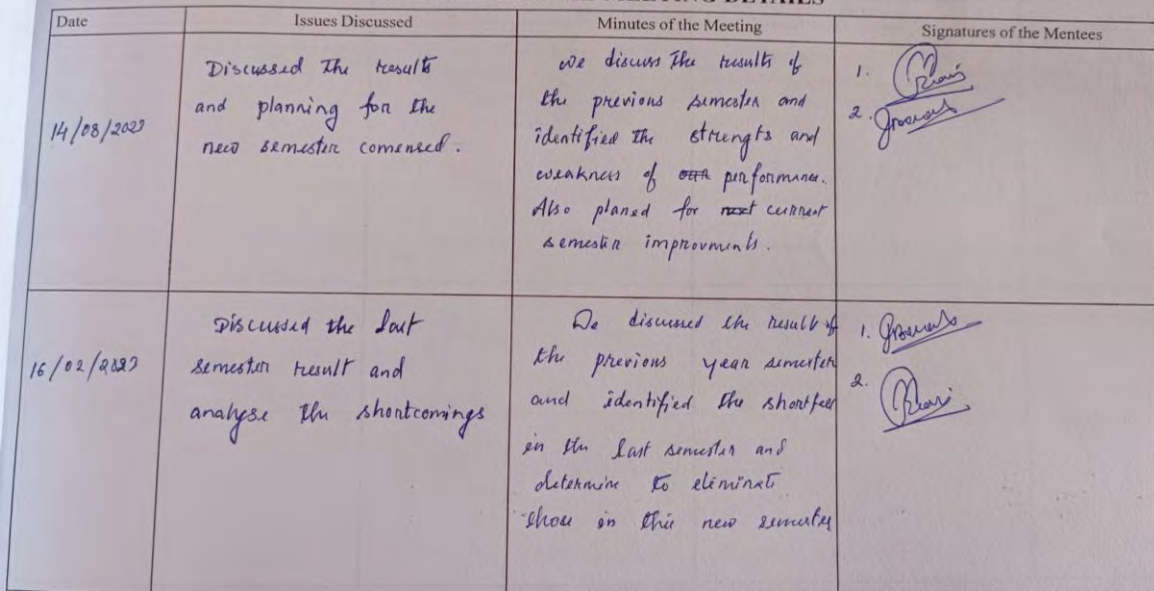 MEETING DETAILS
Date
Issues Discussed
Minutes of the Meeting
Signatures of the Mentees
14/08/2023
Discussed The results
and planning for the
new semester comensed.
we discuss The results of
the previous semester and
identified the strengts and
weakness of performance.
Also planed for current
semester improvments.
1.
2.
16/02/2023
Discussed the last
semester result and
analyse the shortcomings
We discussed the result of
the previous year semester
and identified the shortfeel
in the last semester and
determine to eliminate
those in this new semester
1.
2.